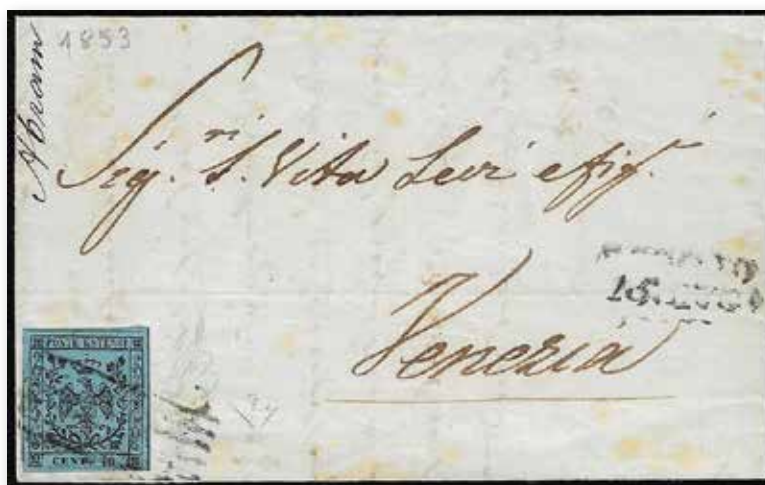 1853
Sig.ri S. Vita Levi e fig.i
Venezia
15. LUG
POSTE ESTENSI
CENT. 40